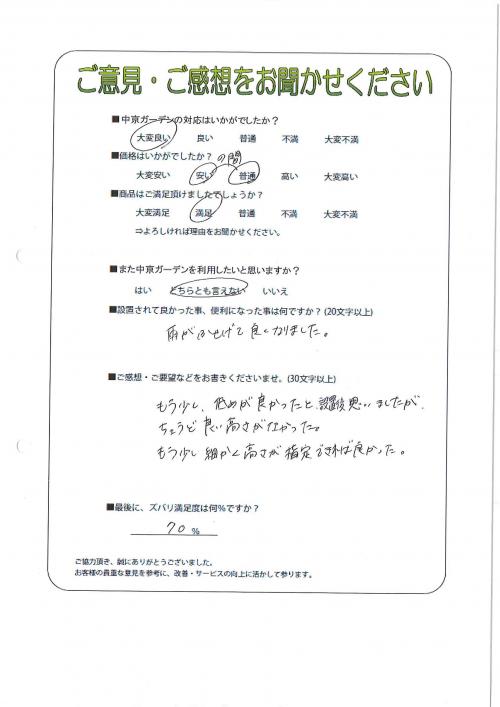 ご意見・ご感想をお聞かせください
■中京ガーデンの対応はいかがでしたか？
大変良い 良い 普通 不満 大変不満
■価格はいかがでしたか？ の間
大変安い 安い 普通 高い 大変高い
■商品はご満足頂けましたでしょうか？
大変満足 満足 普通 不満 大変不満
⇒よろしければ理由をお聞かせください。
■また中京ガーデンを利用したいと思いますか？
はい どちらとも言えない いいえ
■設置されて良かった事、便利になった事は何ですか？(20文字以上)
雨がふせげて良くなりました。
■ご感想・ご要望などをお書きくださいませ。(30文字以上)
もう少し、低めが良かったと、設置後思いましたが、
ちょうど良い高さがなかった。
もう少し細かく高さが指定できれば良かった。
■最後に、ズバリ満足度は何％ですか？
70 ％
ご協力頂き、誠にありがとうございました。
お客様の貴重な意見を参考に、改善・サービスの向上に活かして参ります。